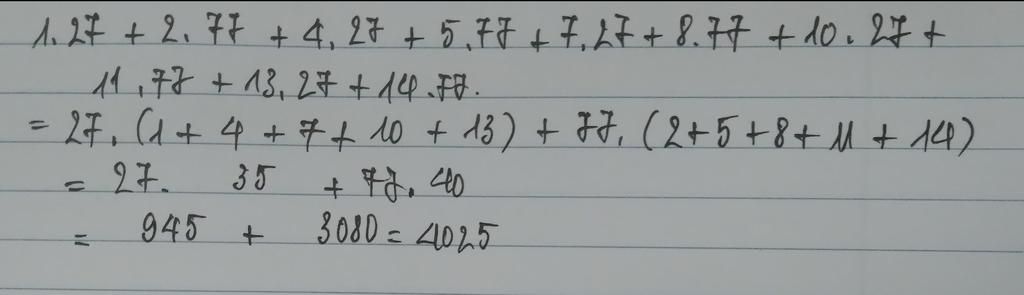 1.27 + 2.77 + 4.27 + 5.77 + 7.27 + 8.77 + 10.27 +
11.77 + 13.27 + 14.77.
= 27.(1 + 4 + 7 + 10 + 13) + 77.(2+5+8+11 + 14)
= 27. 35 + 77.40
= 945 + 3080 = 4025